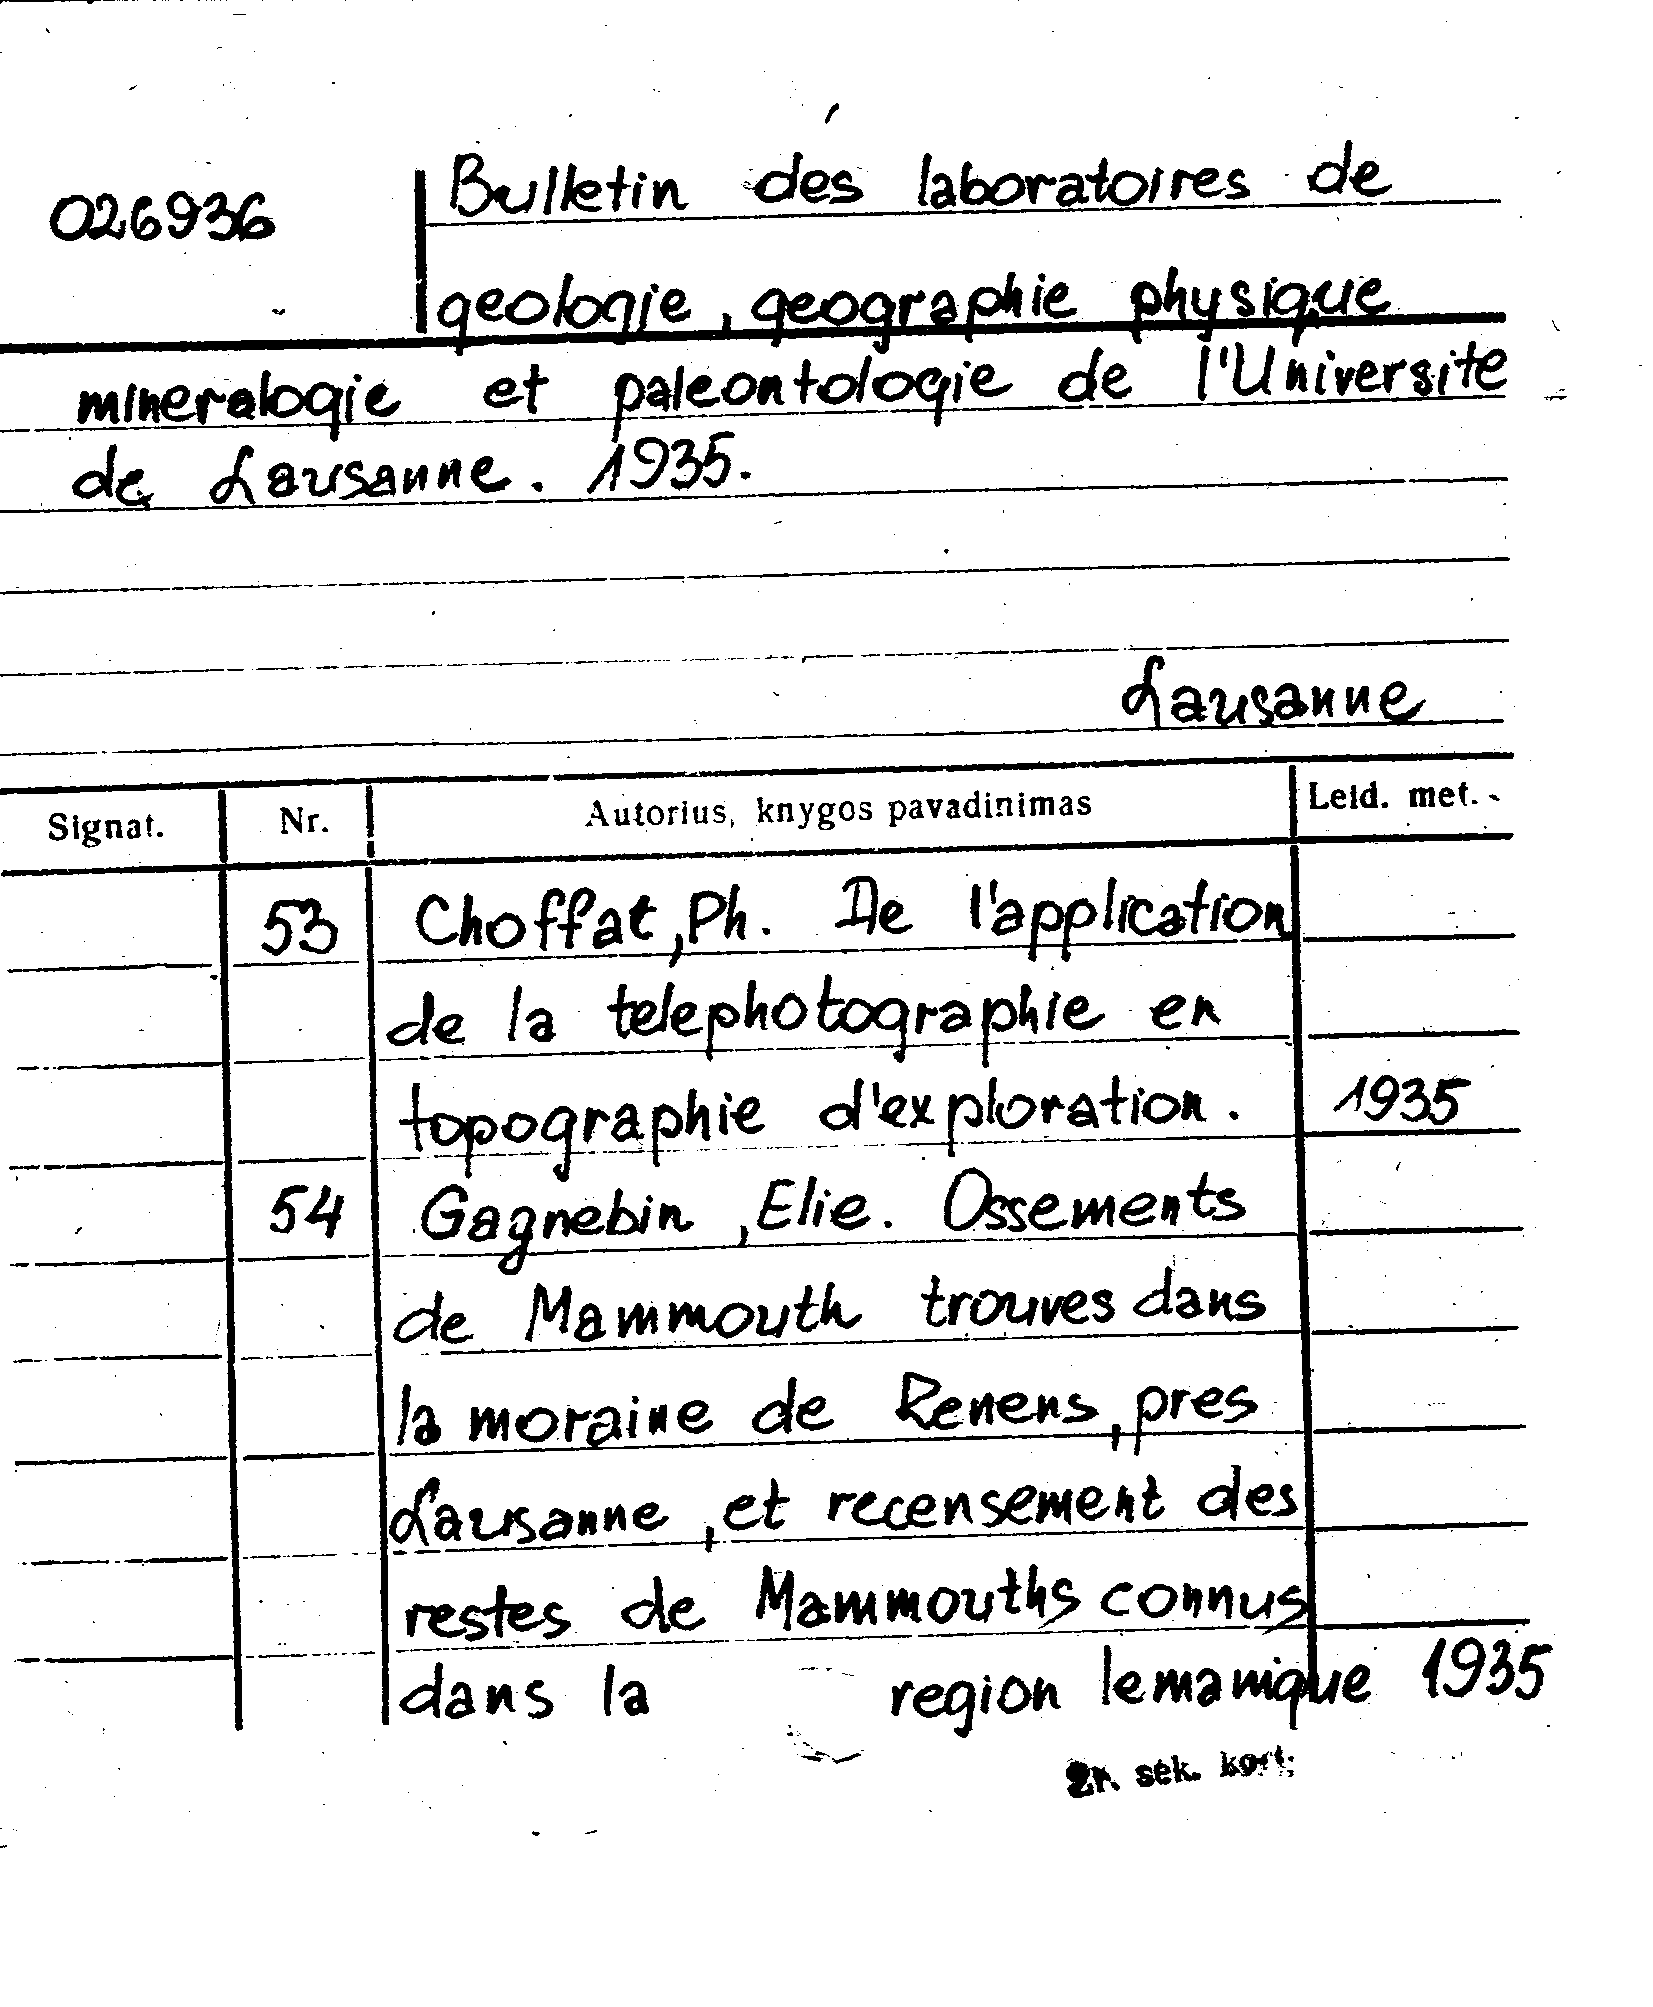 026936 Bulletin des laboratoires de
geologie, geographie physique
mineralogie et paleontologie de l'Universite
de Lausanne. 1935.
Lausanne
Signat. Nr. Autorius, knygos pavadinimas Leid. met.
53 Choffat, Ph. De l'application
de la telephotographie en
topographie d'exploration. 1935
54 Gagnebin, Elie. Ossements
de Mammouth trouves dans
la moraine de Renens, pres
Lausanne, et recensement des
restes de Mammouths connus
dans la region lemanique 1935
2r. sek. kort.